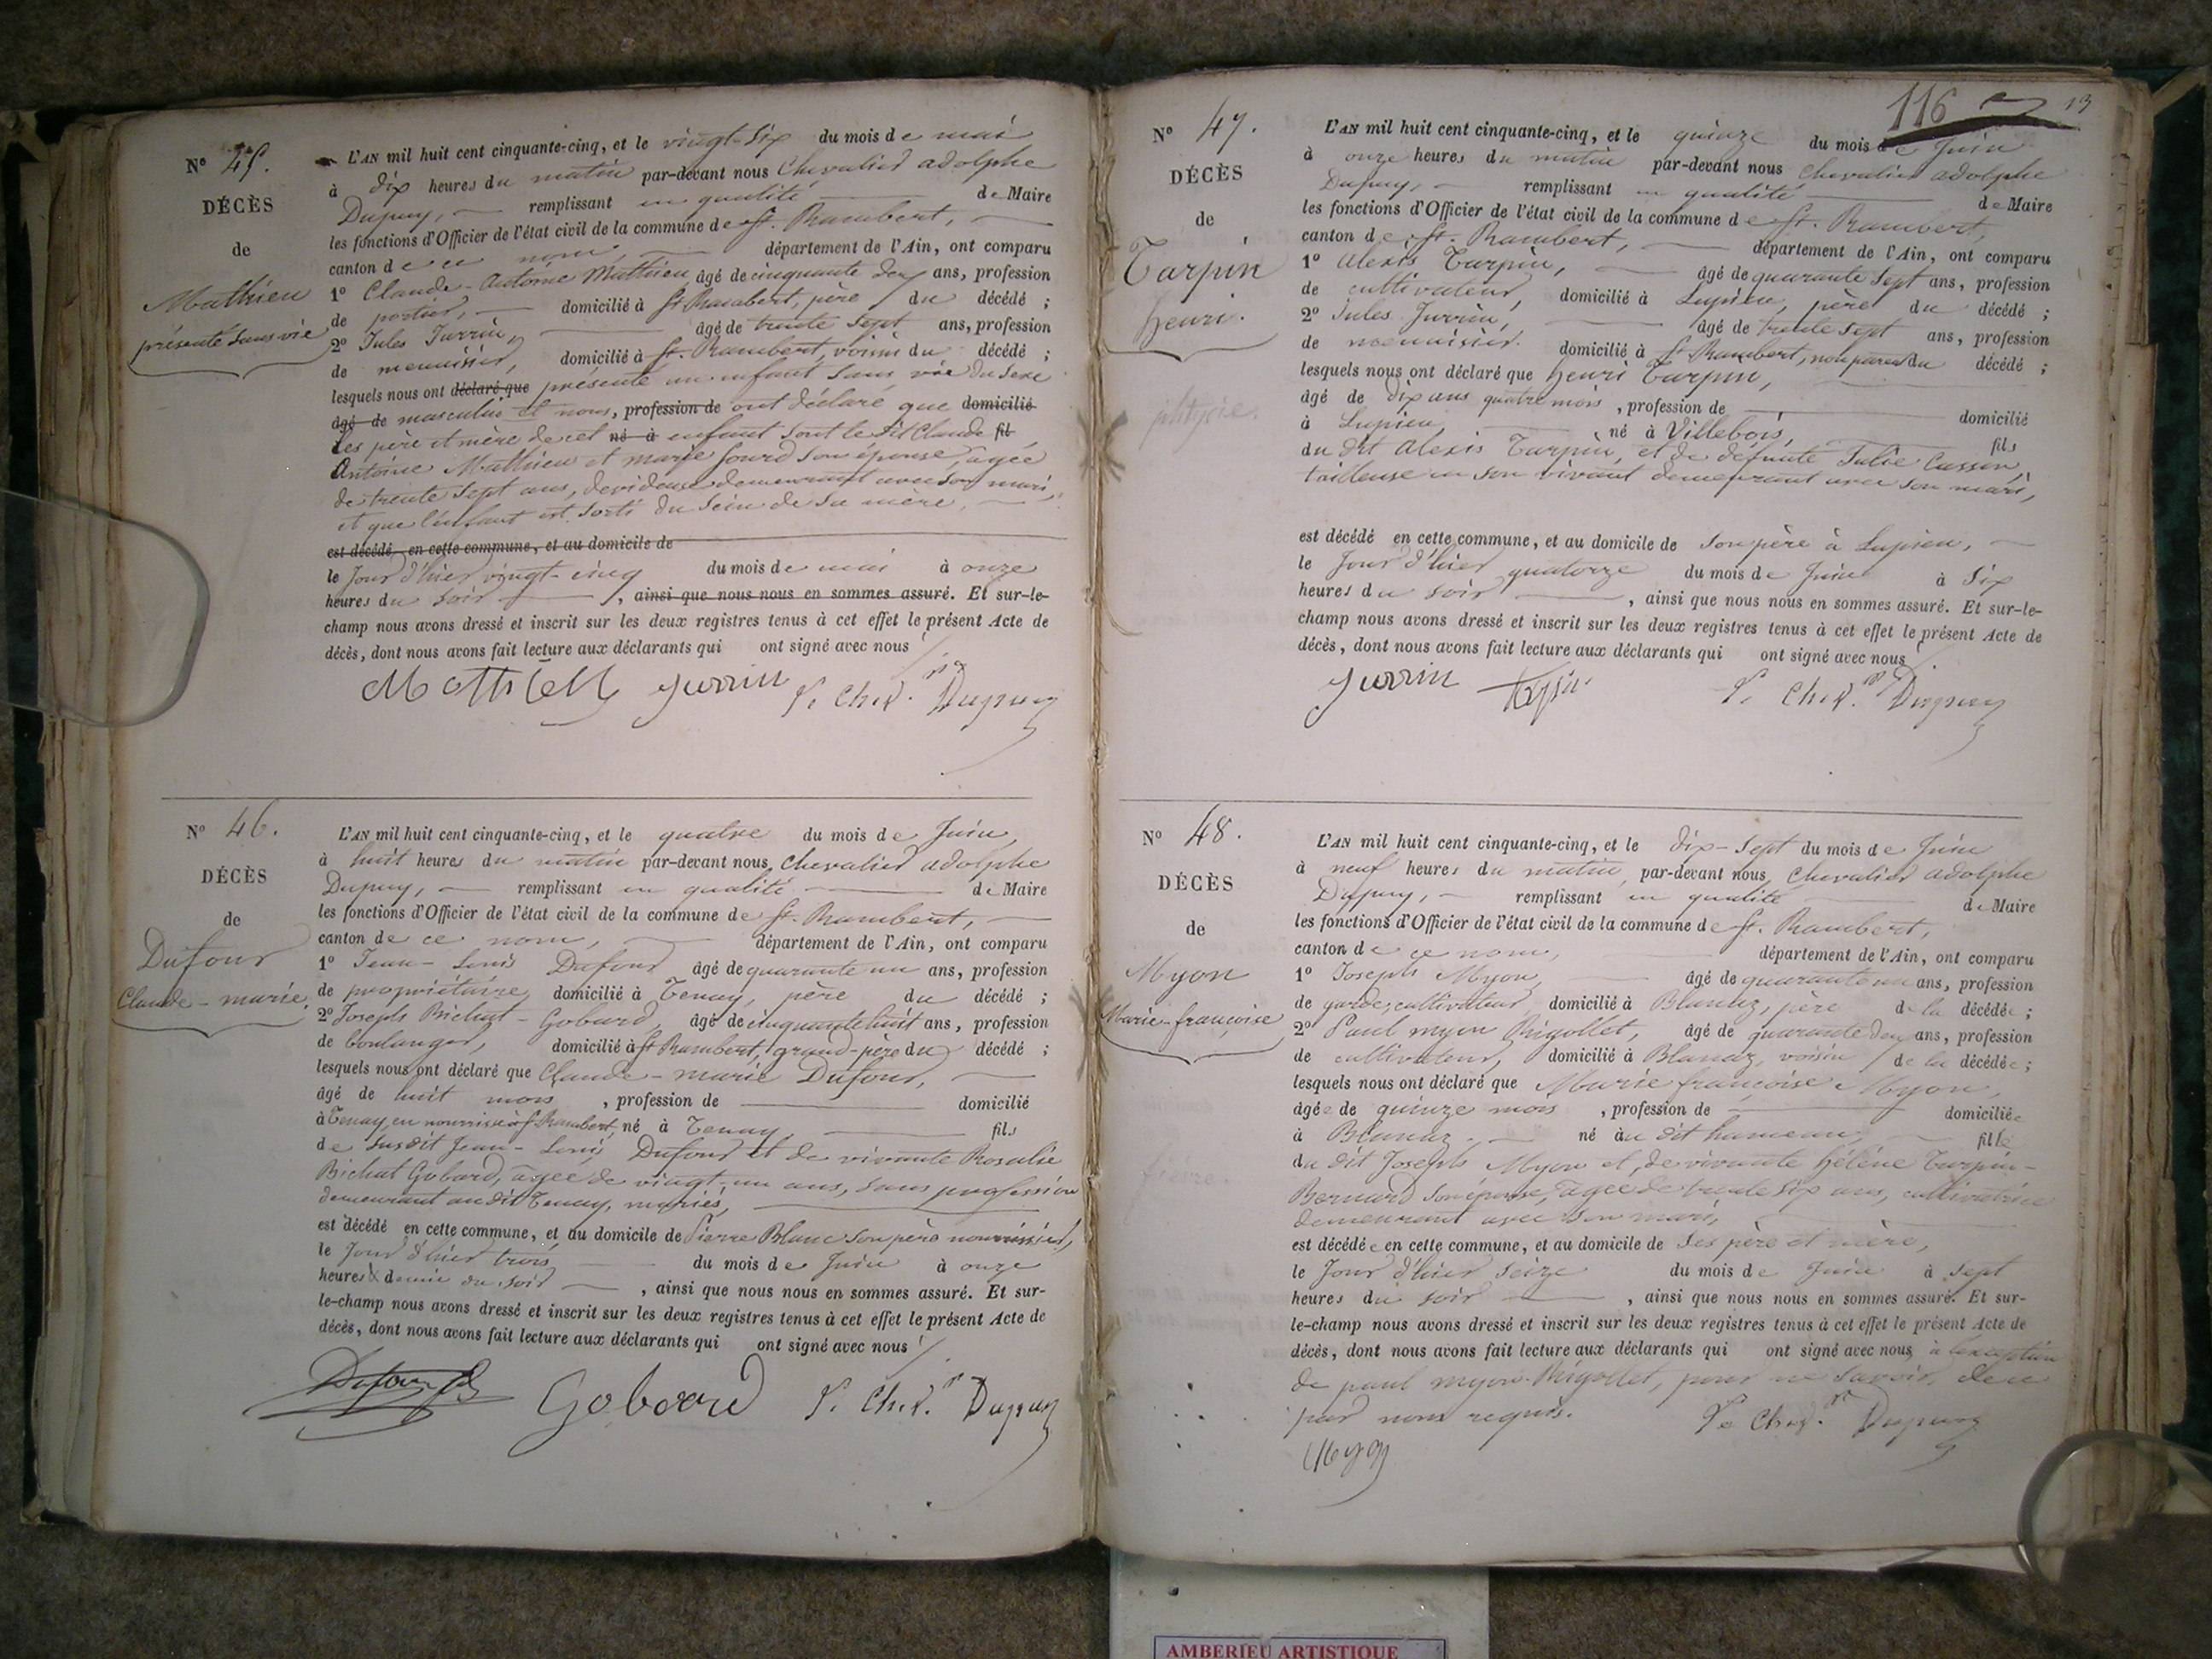 N° 45.
DÉCÈS
de
Mathieu
présenté sans vie
L'AN mil huit cent cinquante-cinq, et le vingt-six du mois de mai
à dix heures du matin par-devant nous Chevalier adolphe
Dupuy, remplissant en qualité de Maire
les fonctions d'Officier de l'état civil de la commune de St. Rambert,
canton de ce nom, département de l'Ain, ont comparu
1° Claude-Antoine Mathieu, âgé de cinquante deux ans, profession
de portier, domicilié à St Rambert, père du décédé ;
2° Jules Jurrin, âgé de trente sept ans, profession
de menuisier, domicilié à St. Rambert, voisin du décédé ;
lesquels nous ont déclaré que présenté un enfant sans vie du sexe
âgé de masculin et nous, profession de ont déclaré que domicilié
les père et mère de cet né à enfant sont le dit Claude fil
Antoine Mathieu et marie Jourd son épouse, agée
de trente sept ans, devideuse demeurant avec son mari,
et que l'enfant est sorti du sein de sa mère,
est décédé en cette commune, et au domicile de
le Jour d'hier vingt-cinq du mois de mai à onze
heures du soir, ainsi que nous nous en sommes assuré. Et sur-le-
champ nous avons dressé et inscrit sur les deux registres tenus à cet effet le présent Acte de
décès, dont nous avons fait lecture aux déclarants qui ont signé avec nous
Jurrin Le Cher. Dupuy
N° 46.
DÉCÈS
de
Dufour
Claude-marie
L'AN mil huit cent cinquante-cinq, et le quatre du mois de Juin
à huit heures du matin par-devant nous Chevalier adolphe
Dupuy, remplissant en qualité de Maire
les fonctions d'Officier de l'état civil de la commune de St. Rambert,
canton de ce nom, département de l'Ain, ont comparu
1° Jean-Louis Dufour âgé de quarante un ans, profession
de propriétaire domicilié à Tenay, père du décédé ;
2° Joseph Bichat-Gobard, âgé de cinquante huit ans, profession
de boulanger, domicilié à St Rambert, grand-père du décédé ;
lesquels nous ont déclaré que Claude-marie Dufour,
âgé de huit mois, profession de domicilié
à Tenay, en nourrice à St Rambert, né à Tenay fils
de susdit Jean-Louis Dufour et de vivante Rosalie
Bichat Gobard, âgée de vingt-un ans, sans profession
demeurant audit Tenay, mariés,
est décédé en cette commune, et au domicile de Pierre Blanc son père nourricier,
le Jour d'hier trois du mois de Juin à onze
heures & demie du soir, ainsi que nous nous en sommes assuré. Et sur-
le-champ nous avons dressé et inscrit sur les deux registres tenus à cet effet le présent Acte de
décès, dont nous avons fait lecture aux déclarants qui ont signé avec nous
Dufour Gobard Le Cher. Dupuy
116 13
N° 47.
DÉCÈS
de
Turpin
henri.
phtysie.
L'AN mil huit cent cinquante-cinq, et le quinze du mois de Juin
à onze heures du matin par-devant nous Chevalier adolphe
Dupuy, remplissant en qualité de Maire
les fonctions d'Officier de l'état civil de la commune de St. Rambert,
canton de St. Rambert, département de l'Ain, ont comparu
1° Alexis Turpin, âgé de quarante sept ans, profession
de cultivateur, domicilié à Lupieu, père du décédé ;
2° Jules Jurrin, âgé de trente sept ans, profession
de menuisier. domicilié à St Rambert, non parent du décédé ;
lesquels nous ont déclaré que henri Turpin,
âgé de dix ans quatre mois, profession de domicilié
à Lupieu, né à Villebois, fils
du dit Alexis Turpin, et de défunte Julie Cassen,
tailleuse en son vivant demeurant avec son mari,
est décédé en cette commune, et au domicile de son père à Lupieu,
le Jour d'hier quatorze du mois de Juin à six
heures du soir, ainsi que nous nous en sommes assuré. Et sur-le-
champ nous avons dressé et inscrit sur les deux registres tenus à cet effet le présent Acte de
décès, dont nous avons fait lecture aux déclarants qui ont signé avec nous
Jurrin Le Cher. Dupuy
N° 48.
DÉCÈS
de
Myon
Marie-françoise
fièvre.
L'AN mil huit cent cinquante-cinq, et le dix-sept du mois de Juin
à neuf heures du matin par-devant nous Chevalier adolphe
Dupuy, remplissant en qualité de Maire
les fonctions d'Officier de l'état civil de la commune de St. Rambert,
canton de ce nom, département de l'Ain, ont comparu
1° Joseph Myon, âgé de quarante un ans, profession
de garde, cultivateur domicilié à Blanaz, père de la décédée ;
2° Paul myon Rigollet, âgé de quarante deux ans, profession
de cultivateur, domicilié à Blanaz, voisin de la décédée ;
lesquels nous ont déclaré que Marie françoise Myon,
âgée de quinze mois, profession de domiciliée
à Blanaz. né au dit hameau, fille
du dit Joseph Myon et de vivante hélène Turpin-
Bernard son épouse, âgée de trente six ans, cultivatrice
demeurant avec son mari,
est décédée en cette commune, et au domicile de ses père et mère,
le Jour d'hier seize du mois de Juin à sept
heures du soir, ainsi que nous nous en sommes assuré. Et sur-
le-champ nous avons dressé et inscrit sur les deux registres tenus à cet effet le présent Acte de
décès, dont nous avons fait lecture aux déclarants qui ont signé avec nous à l'exception
de paul myon-Rigollet, pour ne savoir, de ce
par nous requis. Le Cher. Dupuy
Myon
AMBERIEU ARTISTIQUE